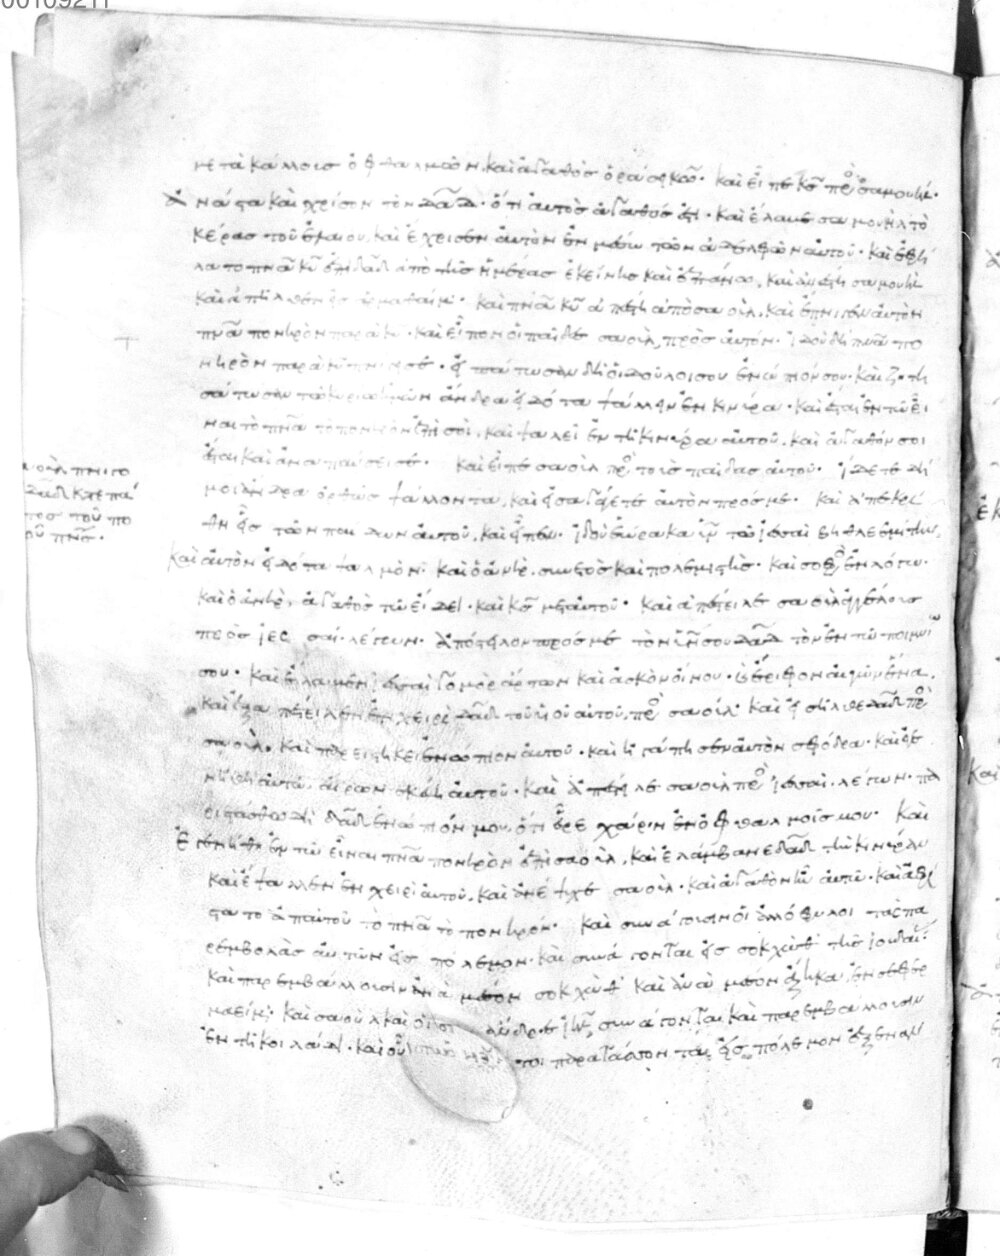 00109211
μετὰ κάλλους ὀφθαλμῶν. καὶ ἀγαθὸς ὁράσει κω̅. καὶ εἶπε κς̅ πρὸ σαμουήλ.
ἀνάστα καὶ χρῖσον τὸν δα̅δ. ὅτι αὐτὸς ἀγαθός ἐστι. καὶ ἔλαβε σαμουὴλ τὸ
κέρας τοῦ ἐλαίου. καὶ ἔχρισεν αὐτὸν ἐν μέσω τῶν ἀδελφῶν αὐτοῦ. καὶ ἐφή
λατο πνα̅ κυ̅ ἐπὶ δα̅δ ἀπὸ τῆς ἡμέρας ἐκείνης καὶ ἐπάνω. καὶ ἀνέστη σαμουὴλ
καὶ ἀπῆλθεν εἰς ἀρμαθαίμ. καὶ πνα̅ κυ̅ ἀπέστη ἀπὸ σαούλ. καὶ ἔπνιγεν αὐτὸν
πνα̅ πονηρὸν παρὰ κυ̅. καὶ εἶπον οἱ παῖδες σαούλ πρὸς αὐτόν. ἰδοὺ δὴ πνα̅ πο
νηρὸν παρὰ κυ̅ πνίγει σε. εἰπάτωσαν δὴ οἱ δοῦλοι σου ἐνώπιόν σου. καὶ ζητη
σάτωσαν τῶ κυρίω ἡμῶν ἄνδρα εἰδότα ψάλλειν ἐν κινύρα. καὶ ἔσται ἐν τῶ εἶ
ναι τὸ πνα̅ τὸ πονηρὸν ἐπὶ σοί. καὶ ψαλεῖ ἐν τῆ κινύρα αὐτοῦ. καὶ ἀγαθόν σοι
ἔσται καὶ ἀναπαύσει σε. καὶ εἶπε σαοὺλ πρὸ τοὺς παῖδας αὐτοῦ. ἴδετε δή
μοι ἄνδρα ὀρθῶς ψάλλοντα. καὶ εἰσαγάγετε αὐτὸν πρός με. καὶ ἀπεκρί
θη εἷς τῶν παιδων αὐτοῦ. καὶ εἶπεν. ἰδοὺ ἑώρακα υἱὸν τῶ ἰεσσαὶ βηθλεεμίτην.
καὶ αὐτὸν εἰδότα ψαλμόν. καὶ ὁ ἀνὴρ συνετὸς καὶ πολεμιστής. καὶ σοφὸ ἐν λόγω.
καὶ ὁ ἀνὴρ ἀγαθὸς τῶ εἴδει. καὶ κς̅ μετ αὐτοῦ. καὶ ἀπέστειλε σαοὺλ ἀγγέλους
πρὸς ἰεσσαί. λέγων. ἀπόστειλον πρός με τὸν υἱόν σου δα̅δ τὸν ἐν τῶ ποιμνίω
σου. καὶ ἔλαβεν ἰεσσαὶ γομὸρ ἄρτων καὶ ἀσκὸν οἴνου. καὶ ἔριφον αἰγῶν ἕνα.
καὶ ἐξαπέστειλεν ἐν χειρὶ δα̅δ τοῦ υἱοῦ αὐτοῦ. πρὸ σαούλ. καὶ εἰσῆλθε δα̅δ πρὸ
σαούλ. καὶ παρειστήκει ἐνώπιον αὐτοῦ. καὶ ἠγάπησεν αὐτὸν σφόδρα. καὶ ἐγε
νήθη αὐτῶ αἴρων σκεύη αὐτοῦ. καὶ ἀπέστειλε σαοὺλ πρὸ ἰεσσαί. λέγων. πα
ριστάσθω δὴ δα̅δ ἐνώπιόν μου. ὅτι εὗρε χάριν ἐν ὀφθαλμοῖς μου. καὶ
ἐγενήθη ἐν τῶ εἶναι πνα̅ πονηρὸν ἐπὶ σαούλ. καὶ ἐλάμβανε δα̅δ τὴν κινύραν
καὶ ἔψαλλεν ἐν χειρὶ αὐτοῦ. καὶ ἀνέψυχε σαούλ. καὶ ἀγαθὸν ἦν αὐτῶ. καὶ ἀφί
στατο ἀπ αὐτοῦ τὸ πνα̅ τὸ πονηρόν. καὶ συνάγουσιν οἱ ἀλλόφυλοι τὰς πα
ρεμβολὰς αὐτῶν εἰς πόλεμον. καὶ συνάγονται εἰς σοκχὼθ τῆς ἰουδαί.
καὶ παρεμβάλλουσιν ἀνὰ μέσον σοκχὼθ καὶ ἀνὰ μέσον ἀζηκα ἐν σεφερ
μαείμ. καὶ σαοὺλ καὶ οἱ ἄνδρες ιηλ συνάγονται καὶ παρεμβάλλουσιν
ἐν τῆ κοιλάδι. παρατάσσονται εἰς πόλεμον ἐξεναν
σαοὺλ πνιγο
πο
οῦ πνς̅.